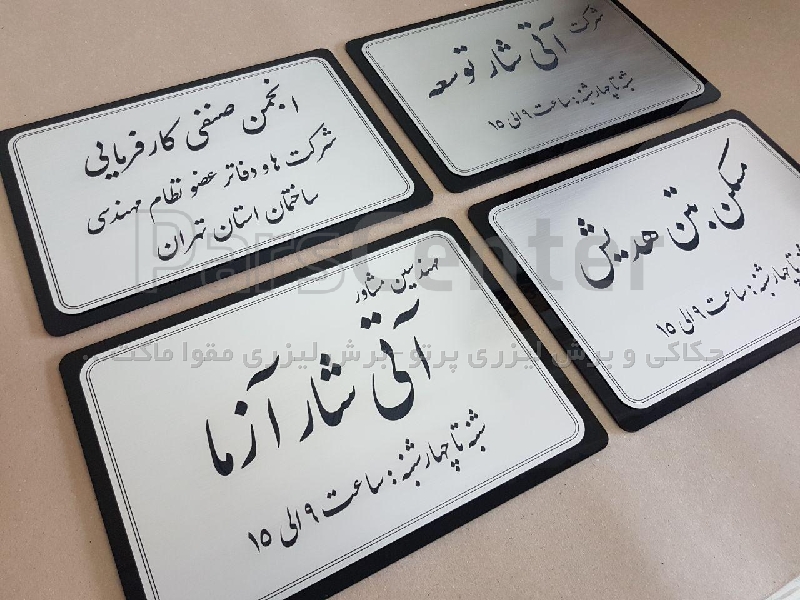 انجمن صنفی کارفرمایی
شرکت ها و دفاتر عضو نظام مهندسی
ساختمان استان تهران
شرکت آتی شار توسعه
شنبه تا چهارشنبه : ساعت ۹ الی ۱۵
مهندسین مشاور
آتی شار آزما
شنبه تا چهارشنبه : ساعت ۹ الی ۱۵
مسکن بتن هدیش
شنبه تا چهارشنبه : ساعت ۹ الی ۱۵
ParsCenter
حکاکی و برش لیزری پرتو-برش لیزری مقوا ماکت